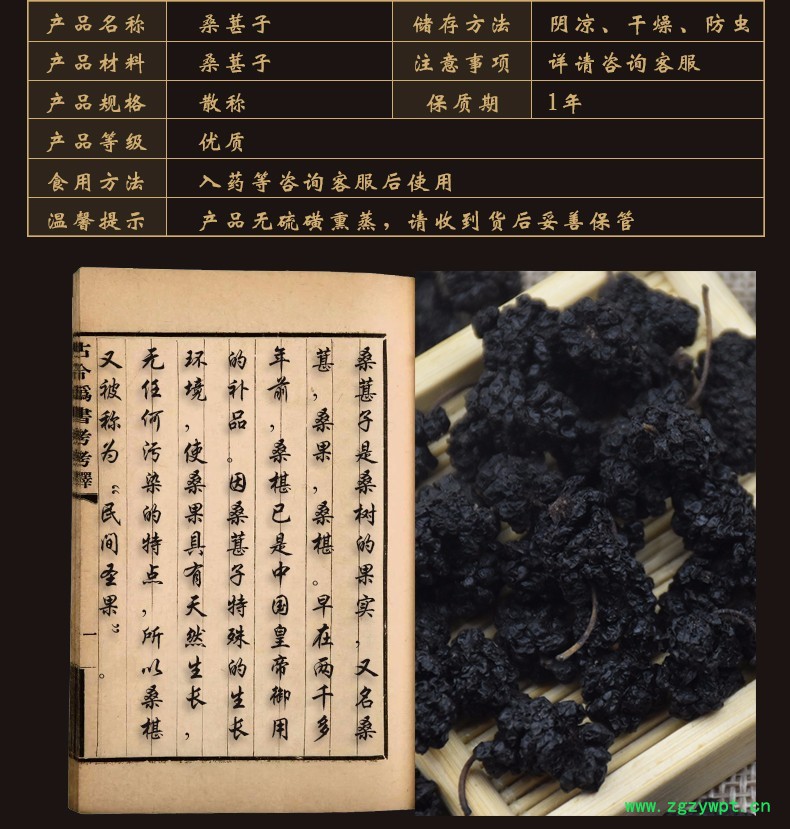 产品名称 桑葚子 储存方法 阴凉、干燥、防虫
产品材料 桑葚子 注意事项 详请咨询客服
产品规格 散称 保质期 1年
产品等级 优质
食用方法 入药等咨询客服后使用
温馨提示 产品无硫磺熏蒸，请收到货后妥善保管
桑葚子是桑树的果实，又名桑
葚，桑果，桑椹。早在两千多
年前，桑椹已是中国皇帝御用
的补品。因桑葚子特殊的生长
环境，使桑果具有天然生长，
无任何污染的特点，所以桑椹
又被称为“民间圣果”。
書考考釋
一
www.zgzywpt.cn